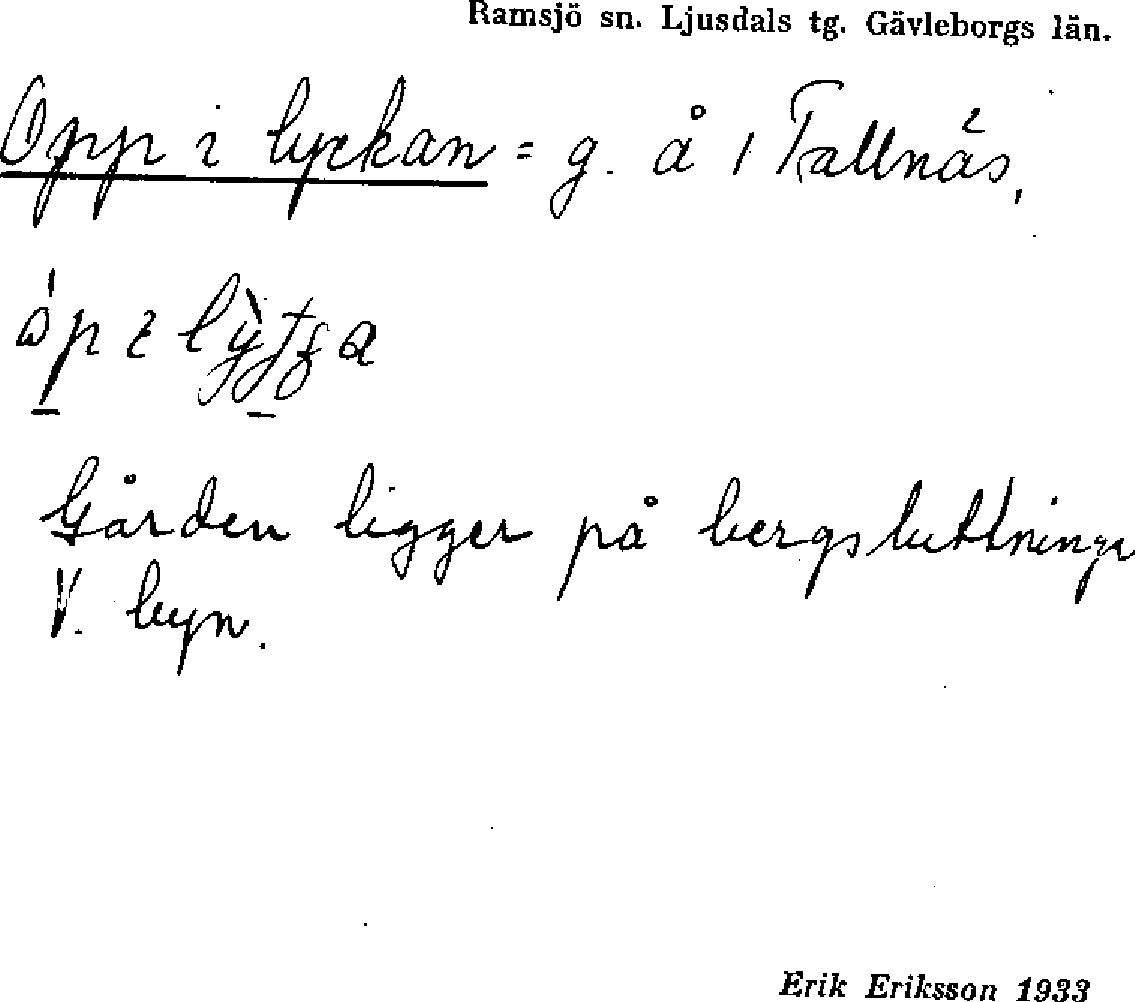 Ramsjö sn. Ljusdals tg. Gävleborgs län.
Opp i lyckan = g. å 1 Tallnäs,
Gården ligger på bergsluttninge
V. byn.
Erik Eriksson 1933